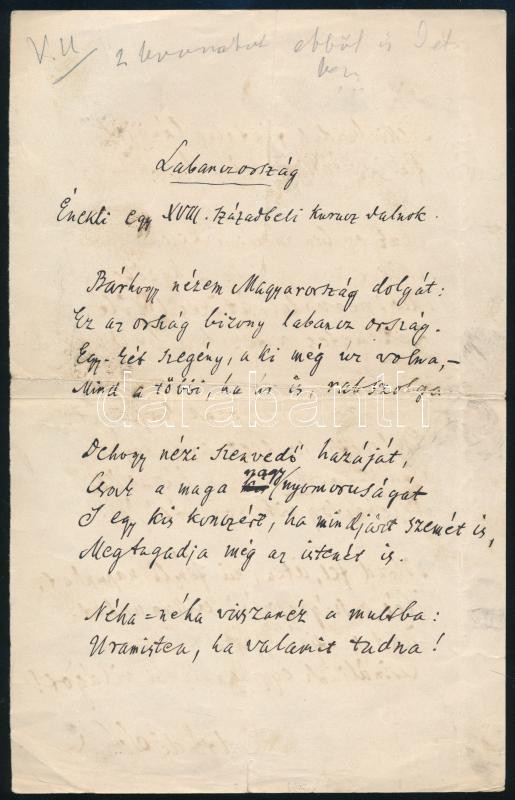 V. U
2 ebből is
Labanczország
Énekli egy XVIII. századbeli kurucz dalnok.
Bárhogy nézem Magyarország dolgát:
Ez az ország bizony labancz ország.
Egy-két szegény, a ki még úr volna, –
Mind a többi, ha úr is, rabszolga.
Dehogy nézi szenvedő hazáját,
Csak a maga nagy nyomoruságát
S egy kis konczért, ha mindjárt szemét is,
Megtagadja még az istenét is.
Néha-néha visszanéz a multba:
Uramisten, ha valamit tudna!
darabanth